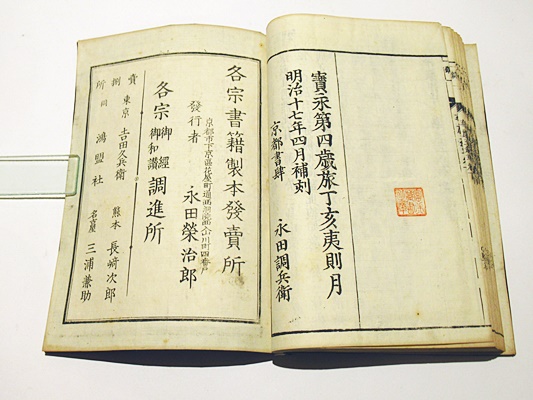 寳永第四歳旅丁亥夷則月
明治十七年四月補刻
京都書肆 永田調兵衛
各宗書籍製本發賣所
京都市下京區花屋町通西洞院西入山川町四番戸
發行者 永田榮治郎
各宗 御經 御和讃 調進所
賣捌所
東京 吉田久兵衛
同 鴻盟社
熊本 長﨑次郎
名古屋 三浦兼助